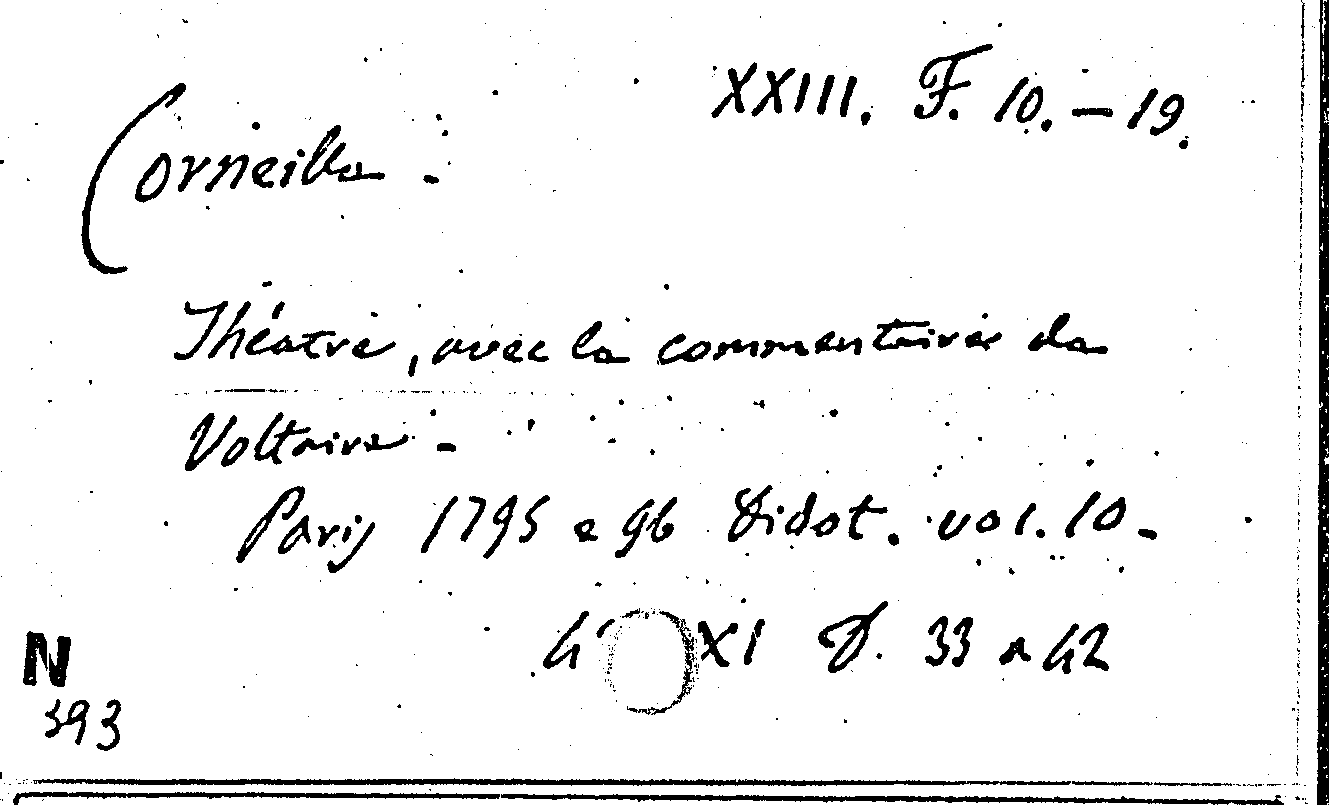 XXIII. F. 10. – 19.
Corneille -
Théatre, avec le commentaires de
Voltaire -
Paris 1795 e 96 Didot. vol. 10 -
4° XI D. 33 a 42
N
393